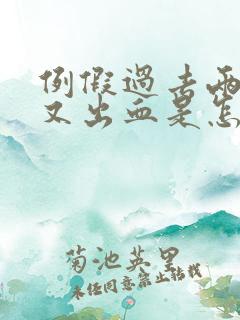 例假過去兩
又出血是怎
菊池英里
未任同意禁止转载